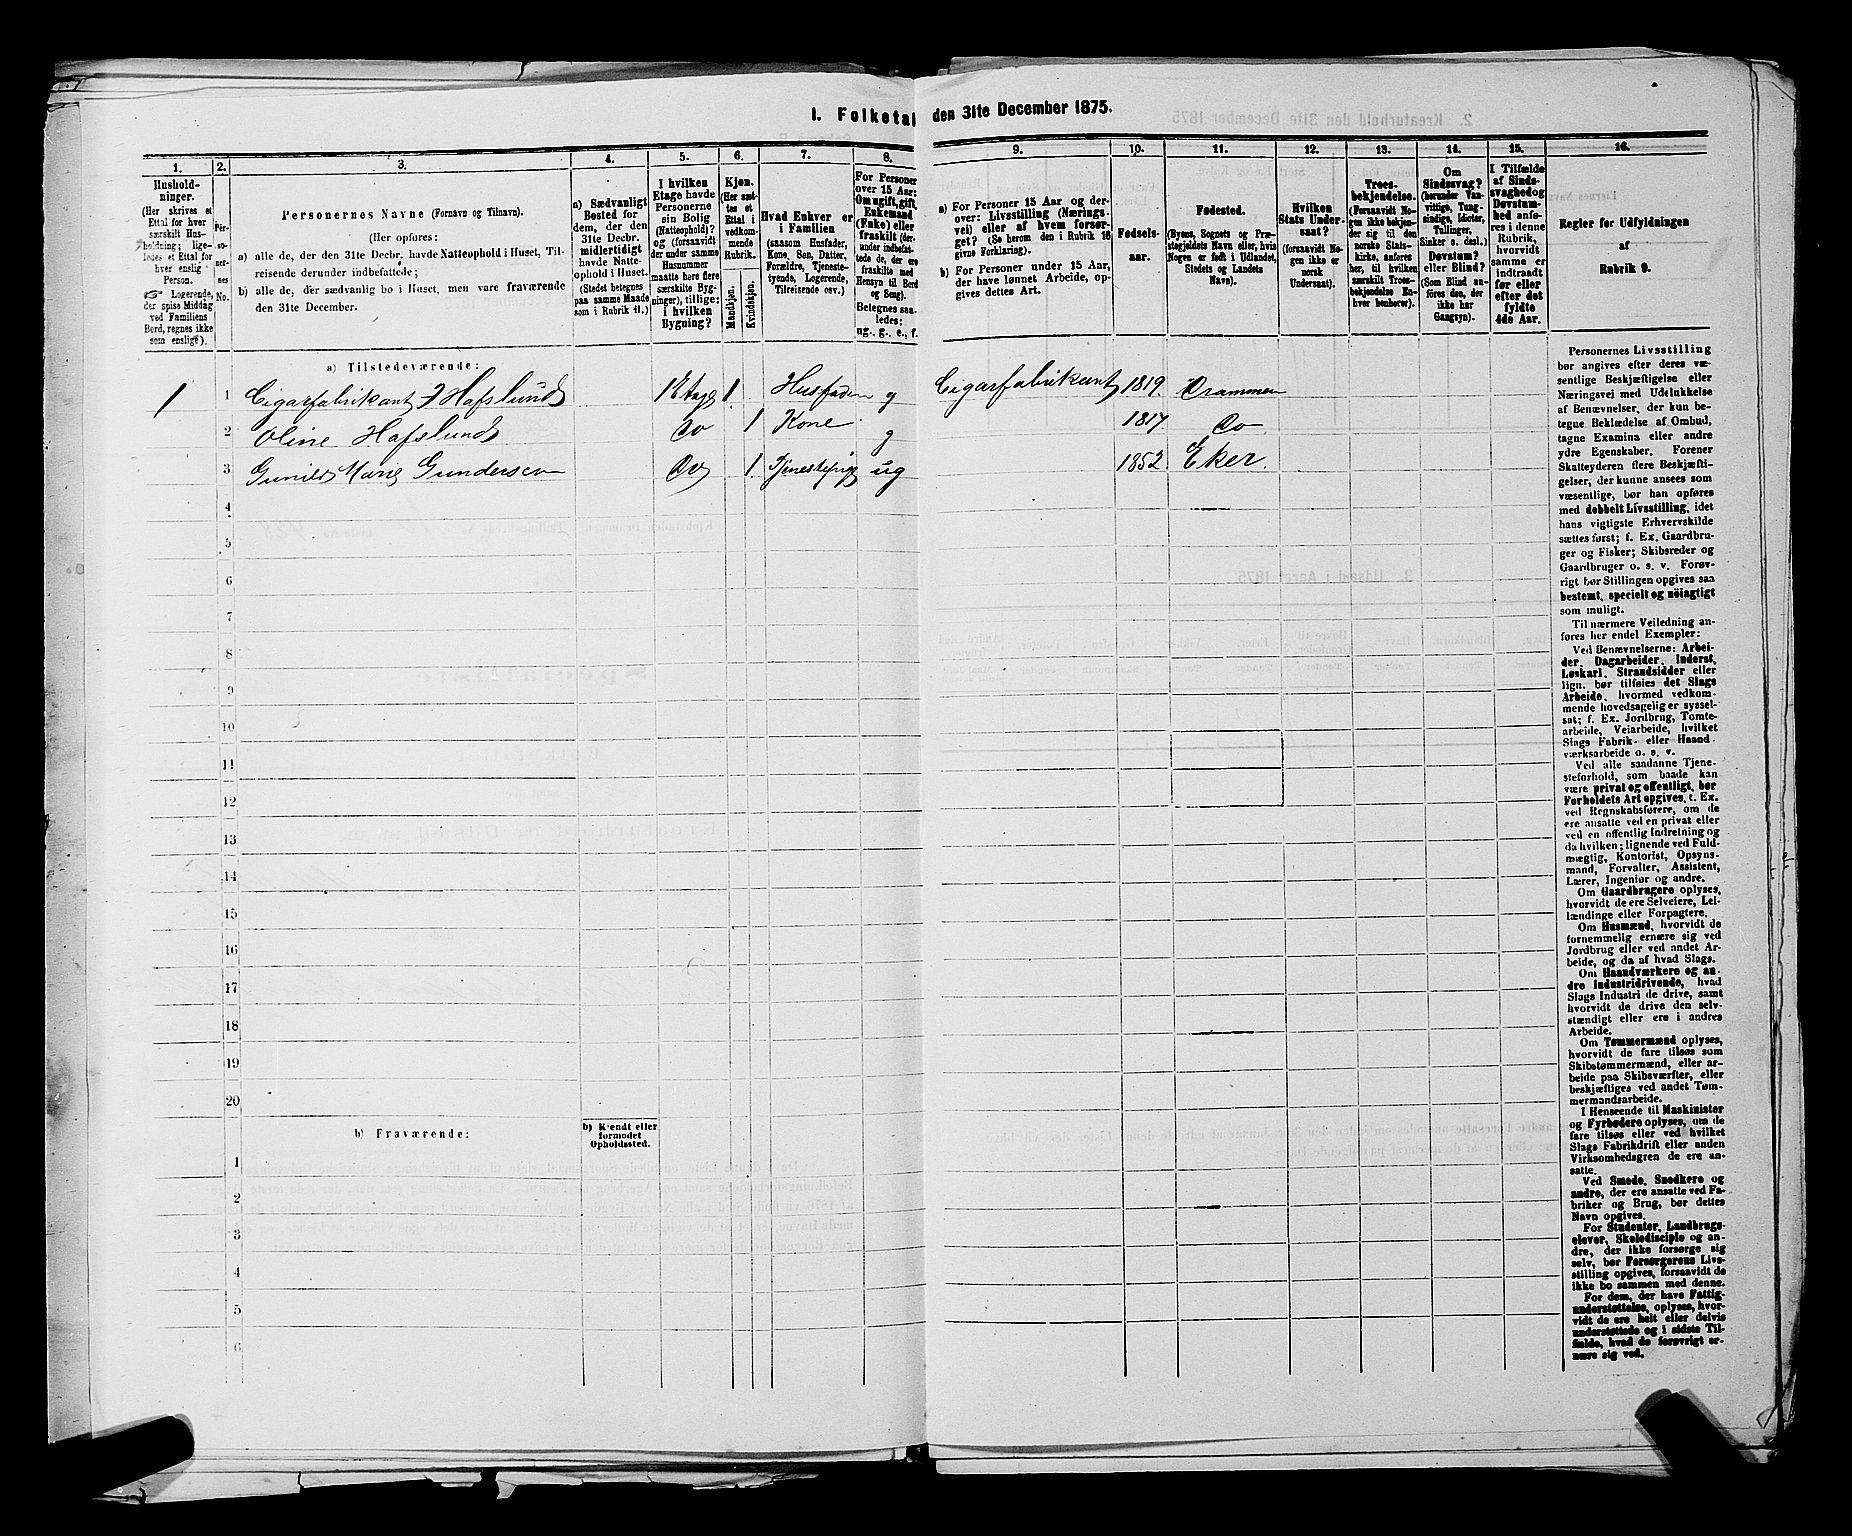 1. Folketal den 31te December 1875.
1. 2. 3. 4. 5. 6. 7. 8. 9. 10. 11. 12. 13. 14. 15. 16.
Husholdninger.
(Her skrives et
Ettal for hver
særskilt Husholdning;
ligeledes et Ettal for
hver enslig
Person.
☞ Logerende,
der spise Middag
ved Familiens
Bord, regnes ikke
som enslige).
Personernes No.
Personernes Navne (Fornavn og Tilnavn).
(Her opføres:
a) alle de, der den 31te Decbr. havde Natteophold i Huset, Tilreisende derunder indbefattede;
b) alle de, der sædvanlig bo i Huset, men vare fraværende
den 31te December.
a) Sædvanligt
Bosted for
dem, der den
31te Decbr.
midlertidigt
havde Natteophold i Huset.
(Stedet betegnes
paa samme Maade
som i Rubrik 11.)
I hvilken
Etage havde
Personerne
sin Bolig
(Natteophold)?
og (forsaavidt
der under samme
Husnummer
maatte høre flere
særskilte Bygninger), tillige:
i hvilken
Bygning?
Kjøn.
(Her sættes et
Ettal i
vedkommende
Rubrik.
Mandkjøn.
Kvindekjøn.
Hvad Enhver er
i Familien
(saasom Husfader,
Kone, Søn, Datter,
Forældre, Tjenestetyende, Logerende,
Tilreisende osv.)
For Personer
over 15 Aar:
Om ugift, gift,
Enkemand
(Enke) eller
fraskilt (derunder indbefattede de, der ere
fraskilte med
Hensyn til Bord
og Seng).
Betegnes saaledes:
ug., g., e., f.
a) For Personer 15 Aar og derover: Livsstilling (Næringsvei) eller af hvem forsørget? (Se herom den i Rubrik 16
givne Forklaring).
b) For Personer under 15 Aar,
der have lønnet Arbeide, opgives dettes Art.
Fødselsaar.
Fødested.
(Byens, Sognets og Præstegjeldets Navn eller, hvis
Nogen er født i Udlandet,
Stedets og Landets
Navn).
Hvilken
Stats Undersaat?
(forsaavidt Nogen ikke er
norsk
Undersaat).
Troesbekjendelse.
(Forsaavidt Nogen ikke bekjender sig til den
norske Statskirke, anføres
her, til hvilken
særskilt Troesbekjendelse Enhver henhører).
Om
Sindssvag?
(herunder Vanvittige, Tungsindige, Idioter,
Sinker o. desl.)
Døvstum?
eller Blind?
(Som Blind anføres den, der
ikke har
Gangsyn).
I Tilfælde
af Sindssvaghed og
Døvstumhed anføres i denne
Rubrik,
hvorvidt
samme er
indtraadt
før eller
efter det
fyldte
4de Aar.
Regler for Udfyldningen
af
Rubrik 9.
a) Tilstedeværende:
1 1 Cigarfabrikant Hafslund 1 Etage 1 Husfader g Cigarfabrikant 1819. Drammen
2 Oline Hafslund Do 1 Kone g 1817. Do
3 Gunild Marie Gundersen Do 1. ug 1852. Eker.
4
5
6
7
8
9
10
11
12
13
14
15
16
17
18
19
20
b) Fraværende:
b) Kjendt eller
formodet
Opholdssted.
1
2
3
4
5
6
Personernes Livsstilling
bør angives efter deres væsentlige Beskjæftigelse eller
Næringsvei med Udelukkelse
af Benævnelser, der kun betegne Beklædelse af Ombud,
tagne Examina eller andre
ydre Egenskaber. Forener
Skatteyderen flere Beskjæftigelser, der kunne ansees som
væsentlige, bør han opføres
med dobbelt Livsstilling, idet
hans vigtigste Erhvervskilde
sættes først; f. Ex. Gaardbruger og Fisker; Skibsreder og
Gaardbruger o. s. v. Forøvrigt bør Stillingen opgives saa
bestemt, specielt og nöiagtigt
som muligt.
Til nærmere Veiledning anføres her endel Exempler:
Ved Benævnelserne: Arbeider, Dagarbeider, Inderst,
Løskarl, Strandsidder eller
lign. bør tilføies det Slags
Arbeide, hvormed vedkommende hovedsagelig er sysselsat; f. Ex. Jordbrug, Tomtearbeide, Veiarbeide, hvilket
Slags Fabrik- eller Haandværksarbeide o. s. v.
Ved alle saadanne Tjenesteforhold, som baade kan
være privat og offentligt, bør
Forholdets Art opgives, t. Ex.
ved Regnskabsførere, om de
ere ansatte ved en privat eller
ved en offentlig Indretning og
da hvilken; lignende ved Fuldmægtig, Kontorist, Opsynsmand, Forvalter, Assistent,
Lærer, Ingeniør og andre.
Om Gaardbrugere oplyses,
hvorvidt de ere Selveiere, Leilændinge eller Forpagtere.
Om Husmænd, hvorvidt de
fornemmelig ernære sig ved
Jordbrug eller ved andet Arbeide, og da af hvad Slags.
Om Haandværkere og andre Industridrivende, hvad
Slags Industri de drive, samt
hvorvidt de drive den selvstændigt eller ere i andres
Arbeide.
Om Tømmermænd oplyses,
hvorvidt de fare tilsøs som
Skibstømmermænd, eller arbeide paa Skibsværfter, eller
beskjæftiges ved andet Tømmermandsarbeide.
I Henseende til Maskinister
og Fyrbødere oplyses, om de
fare tilsøs eller ved hvilket
Slags Fabrikdrift eller anden
Virksomhedsgren de ere ansatte.
Ved Smede, Snedkere og
andre, der ere ansatte ved Fabriker og Brug, bør dettes
Navn opgives.
For Studenter, Landbrugselever, Skoledisciple og andre, der ikke forsørge sig
selv, bør Forsørgerens Livsstilling opgives, forsaavidt de
ikke bo sammen med denne.
For dem, der have Fattigunderstøttelse, oplyses, hvorvidt de ere helt eller delvis
understøttede og i sidste Tilfælde, hvad de forøvrigt ernære sig ved.